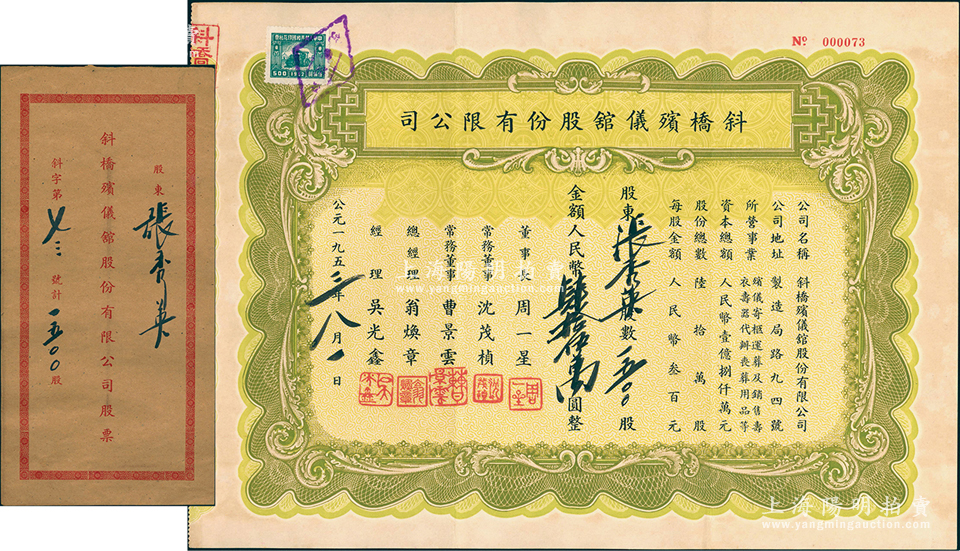 斜橋殯儀舘股份有限公司股票
股東 張秀英
斜字第 七三 號計 一五〇〇 股
500 1952
Nº 000073
斜橋殯儀舘股份有限公司
公司名稱 斜橋殯儀舘股份有限公司
公司地址 製造局路九四號
所營事業 殯儀寄柩運葬及銷售壽衣壽器代辦喪葬用品等
資本總額 人民幣壹億捌仟萬元
股份總數 陸拾萬股
每股金額 人民幣叁百元
股東 張秀英 數 一五〇〇 股
金額人民幣 肆拾伍萬 圓整
董事長 周一星
常務董事 沈茂楨
常務董事 曹景雲
總經理 翁煥章
經理 吳光鑫
公元一九五三年八月一日
上海陽明拍賣
www.yangmingauction.com
上海陽明拍賣
www.yangmingauction.com